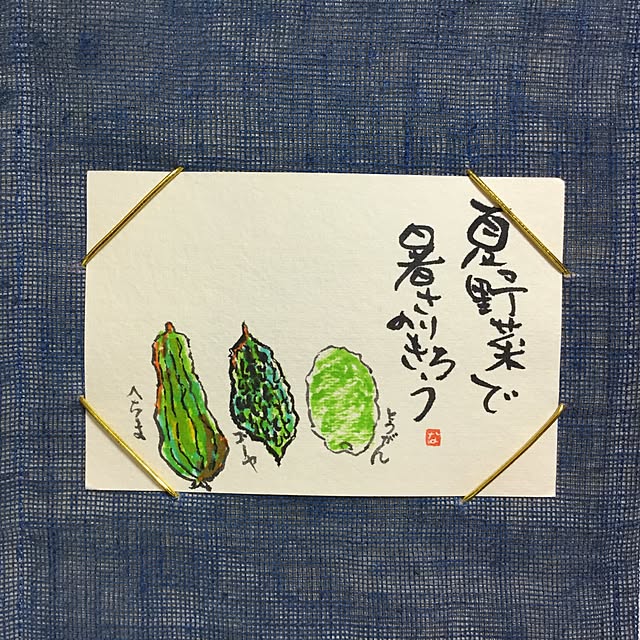 夏野菜で
暑さのりきろう
な
とうがん
ゴーヤ
へちま